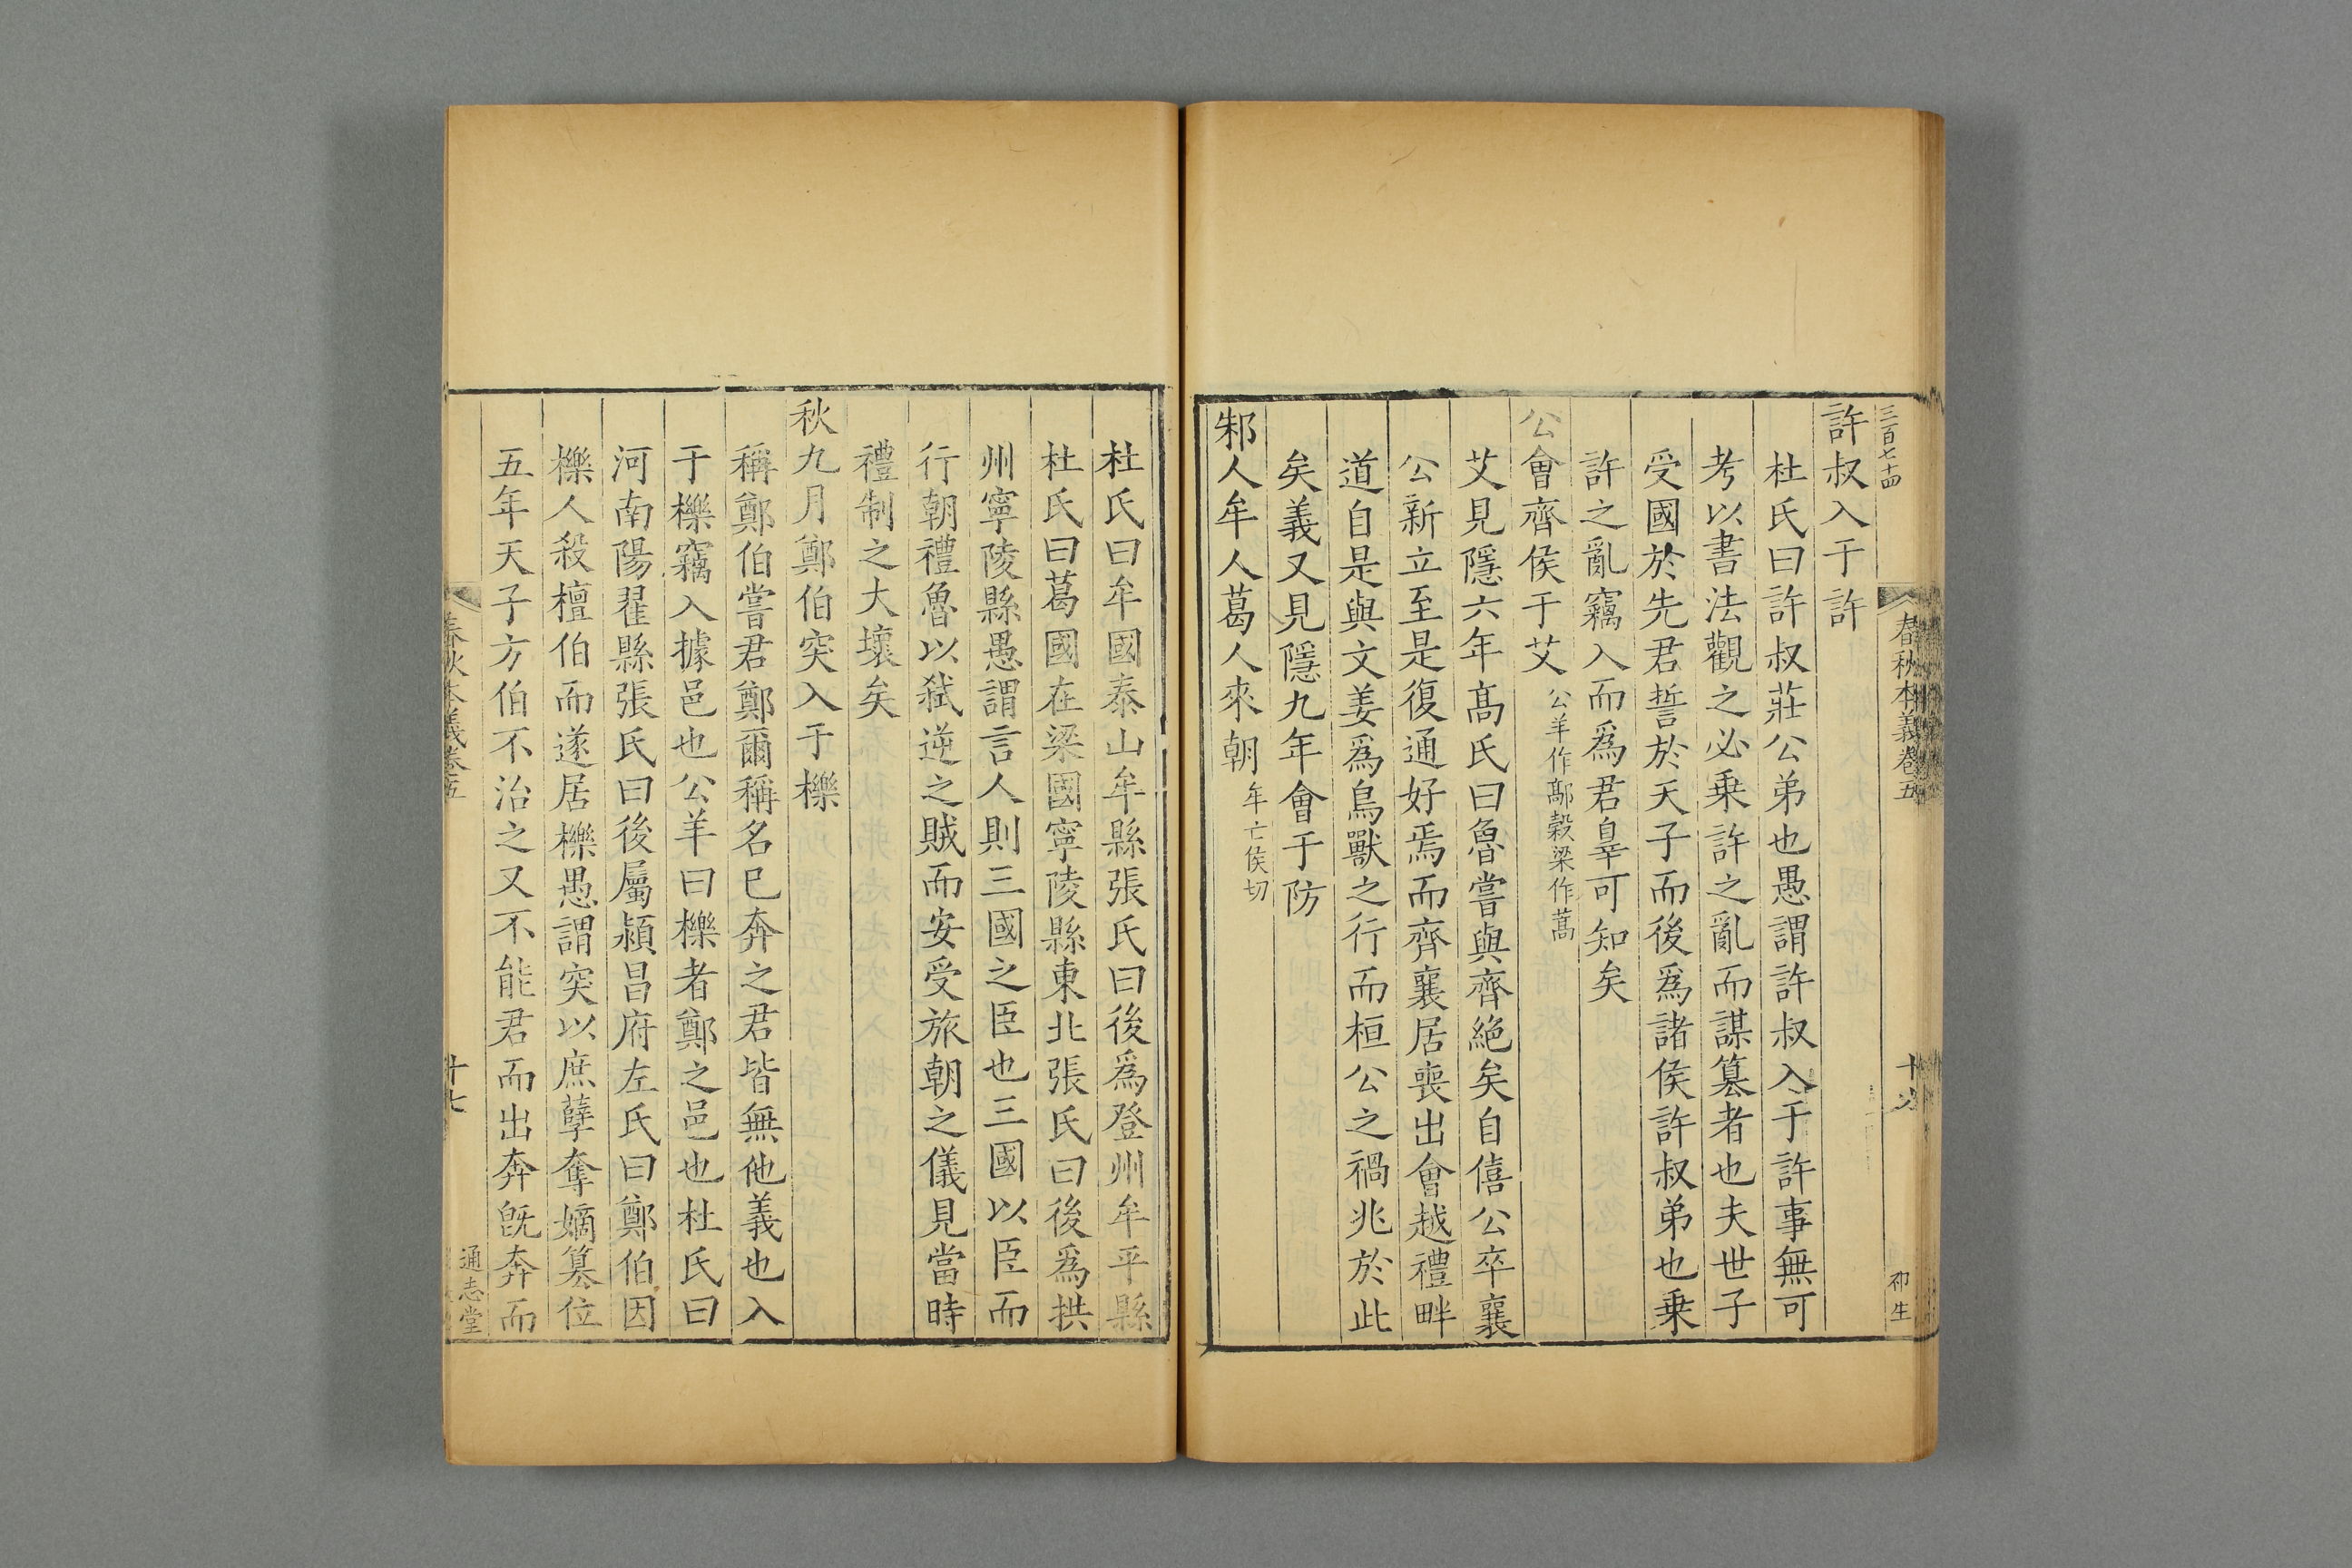 三百七十四
春秋本義卷五
十六
祁生
許叔入于許
杜氏曰許叔莊公弟也愚謂許叔入于許事無可
考以書法觀之必乗許之亂而謀簒者也夫世子
受國於先君誓於天子而後爲諸侯許叔弟也乗
許之亂竊入而爲君辠可知矣
公會齊侯于艾公羊作鄗榖梁作蒿
艾見隱六年髙氏曰魯嘗與齊絶矣自僖公卒襄
公新立至是復通好焉而齊襄居喪出會越禮畔
道自是與文姜爲鳥獸之行而桓公之禍兆於此
矣義又見隱九年會于防
邾人牟人葛人來朝牟亡侯切
杜氏曰牟國泰山牟縣張氏曰後爲登州牟平縣
杜氏曰葛國在梁國寧陵縣東北張氏曰後爲拱
州寧陵縣愚謂言人則三國之臣也三國以臣而
行朝禮魯以弑逆之賊而安受旅朝之儀見當時
禮制之大壞矣
秋九月鄭伯突入于櫟
稱鄭伯嘗君鄭爾稱名已奔之君皆無他義也入
于櫟竊入據邑也公羊曰櫟者鄭之邑也杜氏曰
河南陽翟縣張氏曰後屬潁昌府左氏曰鄭伯因
櫟人殺檀伯而遂居櫟愚謂突以庶孽奪嫡簒位
五年天子方伯不治之又不能君而出奔旣奔而
春秋本義卷五
十七
通志堂